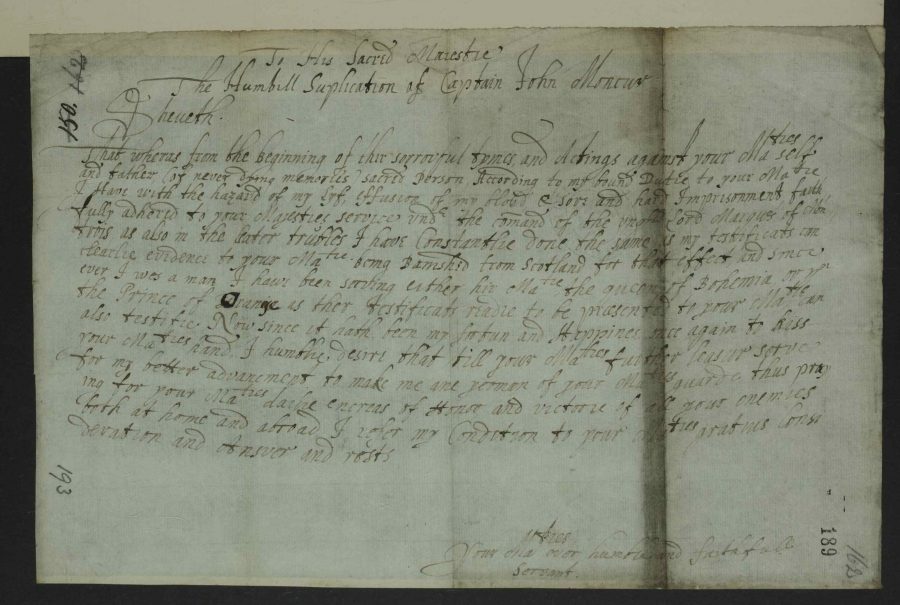 To His Sacred Maiestie
The Humbill Suplication of Captain John Moncur
Sheveth.
That wheras from the beginning of thir sorrowful tymes and Actings against your Maties self
and father (of never dying memorie) sacred Person, According to my bound Dutie to your Matie
I Have with the hazard of my lyf, effusion of my blood & sore and hard Imprisonment faith
fully adhered to your Majesties service under the comand of the Lord Marques of Mon
trois as also in the later trubles I have Constantlie done the same as my testificats can
clearlie evidence to your Matie. Being Banishd from Scotland for that effect and since
ever I wes a man I have been serving either hir Matie the queen of Bohemia or yr
the Prince of Orange as ther testificats readie to be presented to your Matie can
also testifie. Now since it hath been my fortun and Happines once again to kiss
your Maties hand. I humblie desire that till your Maties further leasur serve
for my better advancement, to make me ane yeoman of your Maties guarde thus pray
ing for your Maties dailie encreas of Honor and victorie of all your enemies
both at home and abroad I refer my Condition to your Maties gratius Consi
deration and ansver and rests
Your Maties ever humble and faithfull
Servant.
150
193
189
163